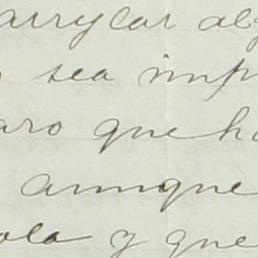 arrglar al
sea imp
aro que ha
aunque
ola y que